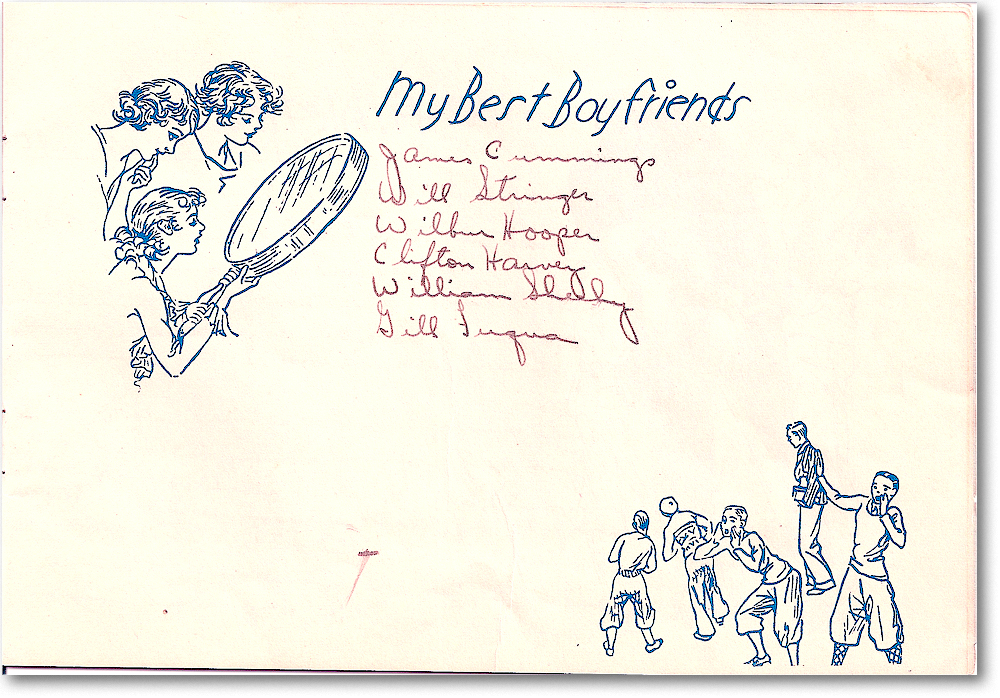 My Best Boyfriends
James Cummings
Will Stringer
Wilbur Hooper
Clifton Harvey
William Shelby
Gill Fuqua